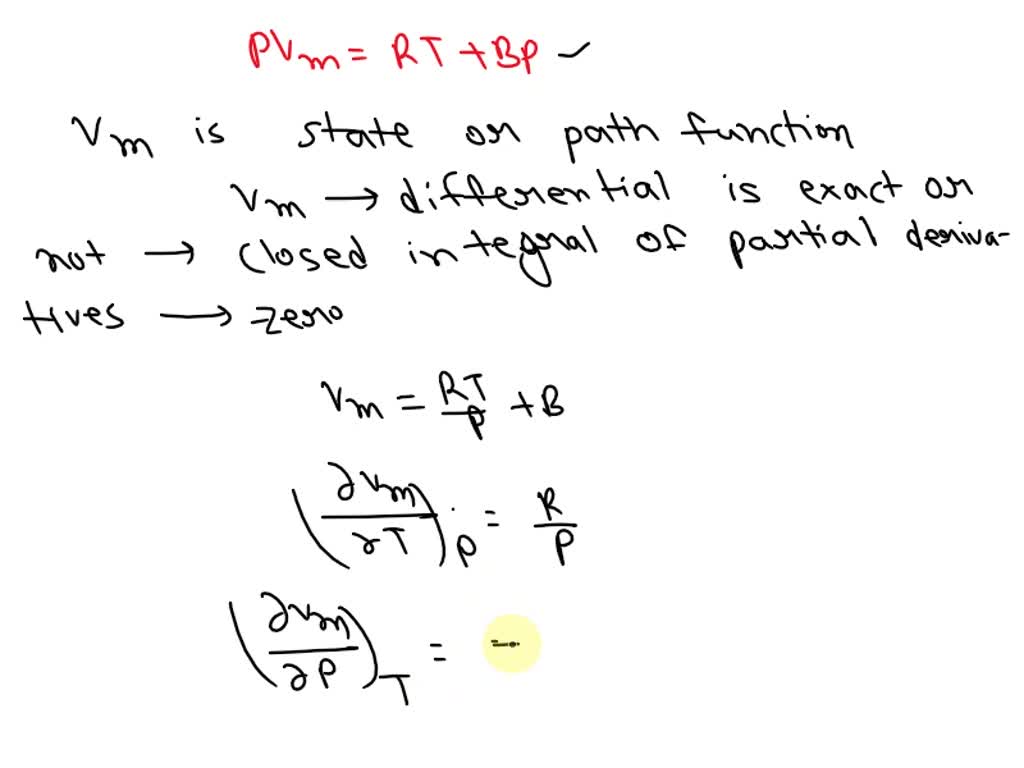 PVm = RT + BP ✓
Vm is state or path function
Vm → differential is exact or
not → closed integral of partial deriva-
tives → zero
Vm = RT/P + B
(∂Vm/∂T)P = R/P
(∂Vm/∂P)T = -